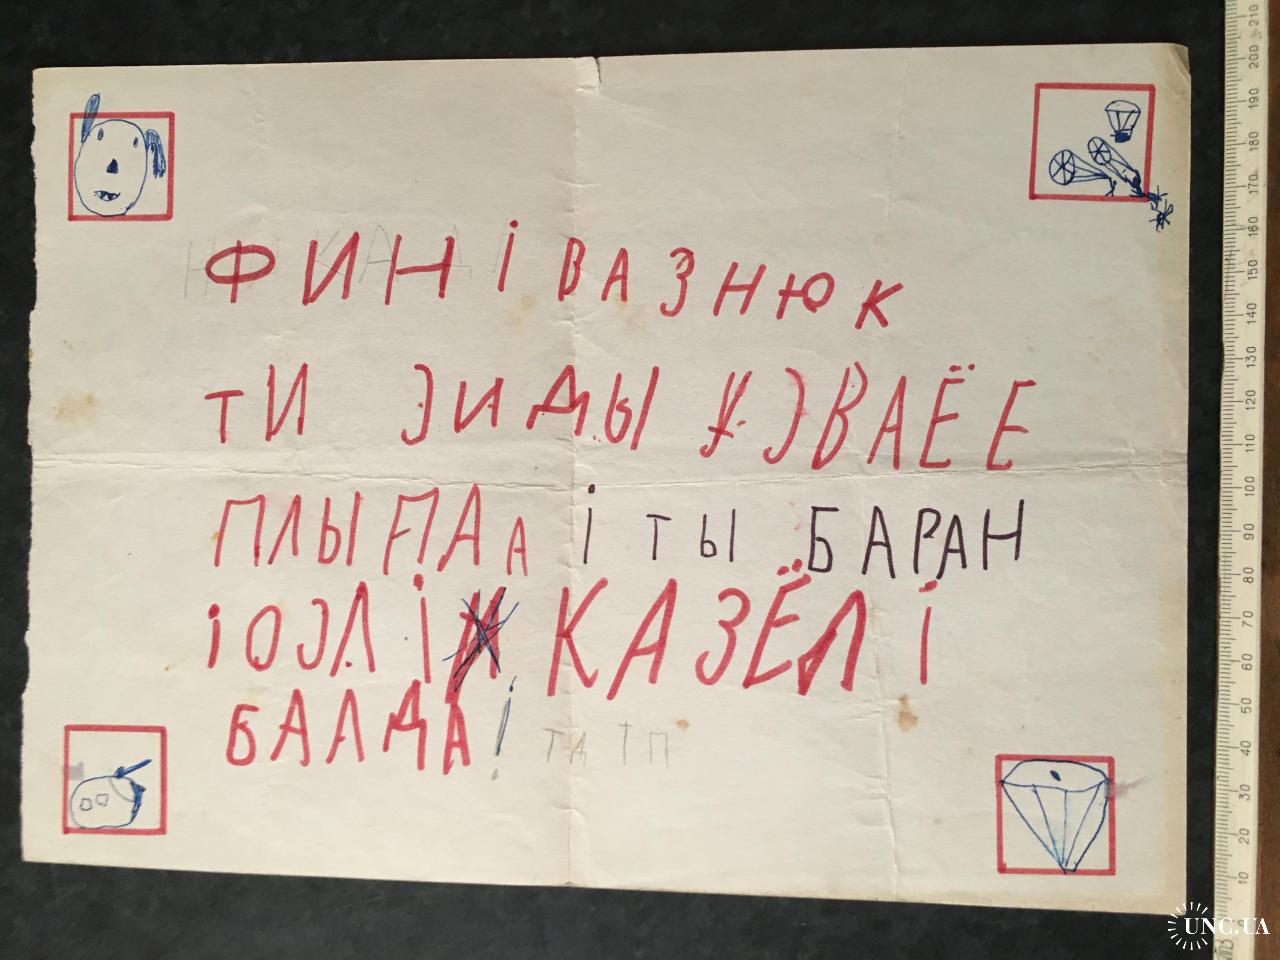 ФИНІВАЗНЮК
ТИ ЭИДЫ УЭВАЁЕ
ПЛЫПАА І ТЫ БАРАН
ІОЭЛІ КАЗЁЛ І
БАЛДА!
ТД ТП
210
200
190
180
170
160
150
140
130
120
110
100
90
80
70
60
50
40
30
20
10
0
UNC.UA